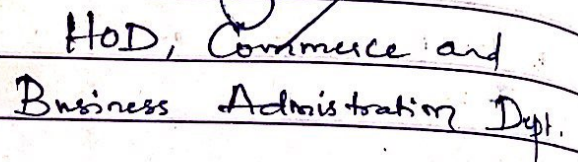 HOD, Commerce and
Business Admistration Dept.